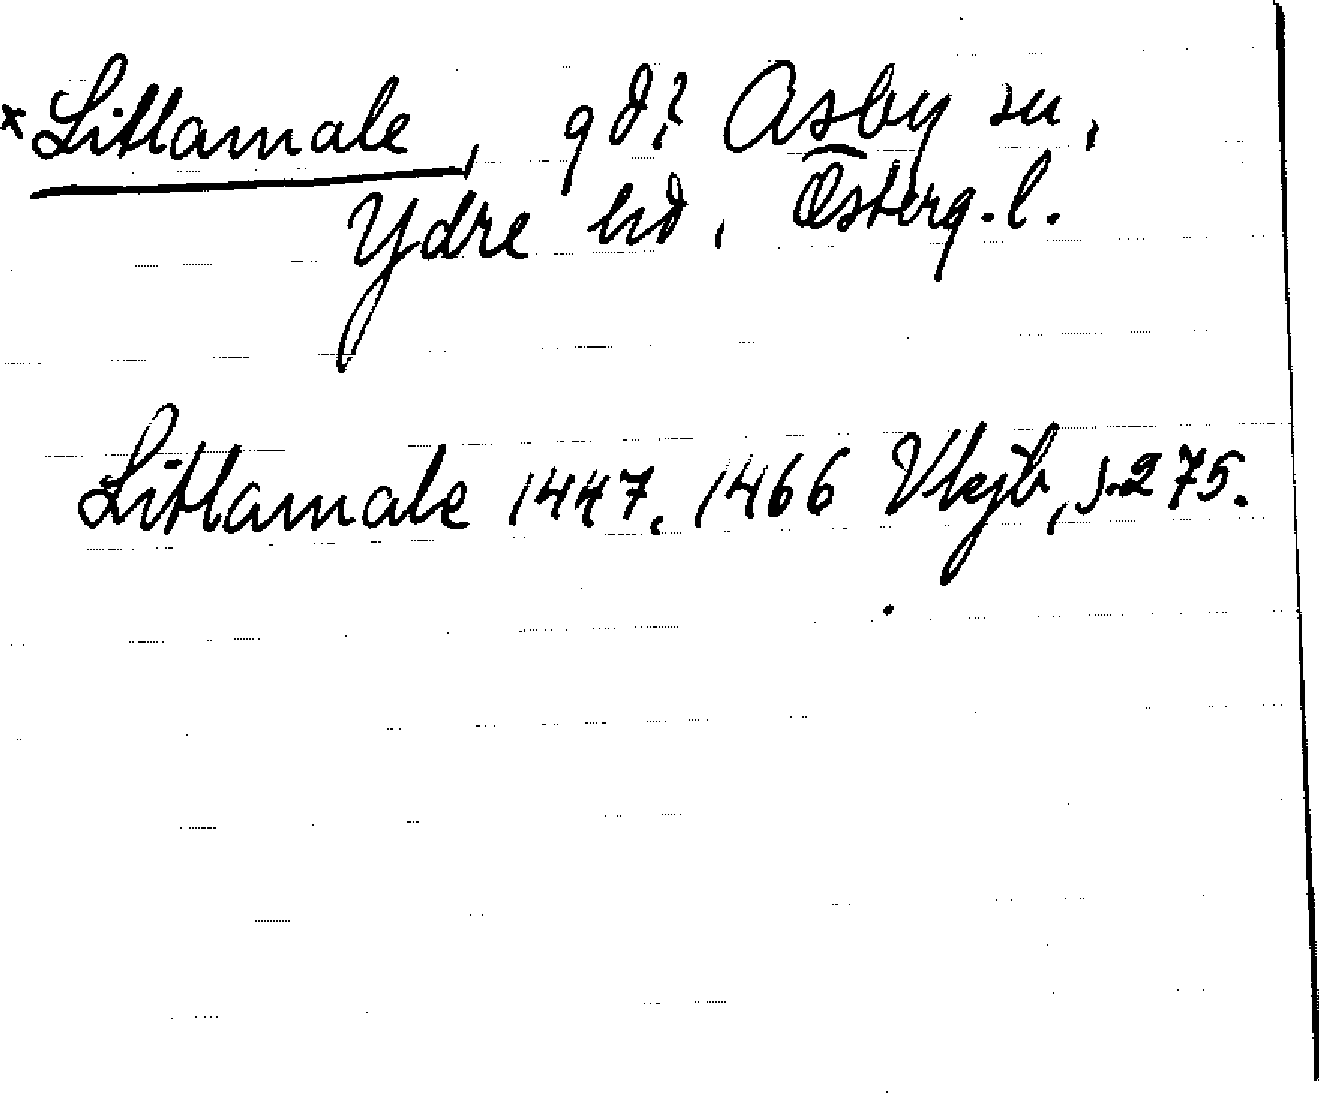 × Litlamale, gd? Asby sn,
Ydre hd, Österg. l.
Litlamale 1447, 1466 Vkjb, s. 275.